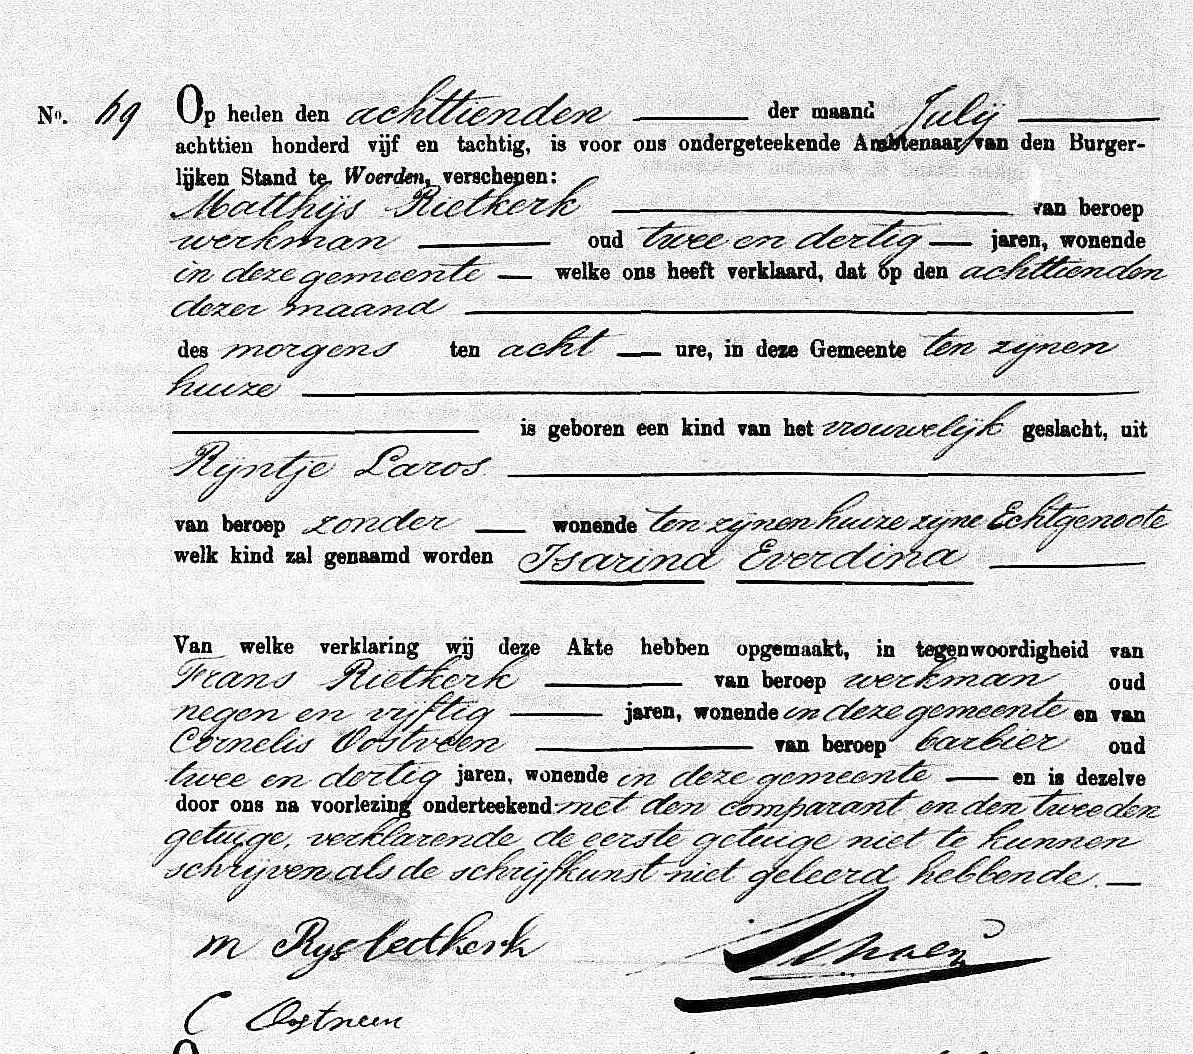 No. 69 Op heden den achttienden der maand Julij
achttien honderd vijf en tachtig, is voor ons ondergeteekende Ambtenaar van den Burger-
lijken Stand te Woerden, verschenen:
Matthijs Rietkerk van beroep
werkman oud twee en dertig jaren, wonende
in deze gemeente welke ons heeft verklaard, dat op den achttienden
dezer maand
des morgens ten acht ure, in deze Gemeente ten zijnen
huize
is geboren een kind van het vrouwelijk geslacht, uit
Rijntje Laros
van beroep zonder wonende ten zijnen huize zijne Echtgenoote
welk kind zal genaamd worden Isarina Everdina
Van welke verklaring wij deze Akte hebben opgemaakt, in tegenwoordigheid van
Frans Rietkerk van beroep werkman oud
negen en vijftig jaren, wonende in deze gemeente en van
Cornelis Oostveen van beroep barbier oud
twee en dertig jaren, wonende in deze gemeente en is dezelve
door ons na voorlezing onderteekend met den comparant en den tweeden
getuige, verklarende de eerste getuige niet te kunnen
schrijven als de schrijfkunst niet geleerd hebbende.
m
C Oostveen